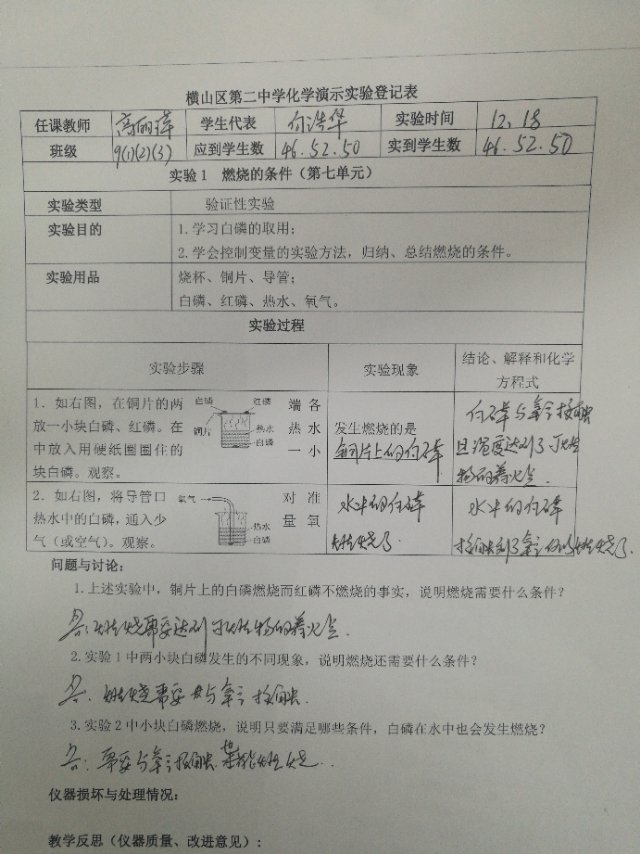 横山区第二中学化学演示实验登记表
任课教师 高丽萍 学生代表 实验时间 12、18
班级 9(1)(2)(3) 应到学生数 46.52.50 实到学生数 46.52.50
实验1 燃烧的条件（第七单元）
实验类型 验证性实验
实验目的 1.学习白磷的取用；
2.学会控制变量的实验方法，归纳、总结燃烧的条件。
实验用品 烧杯、铜片、导管；
白磷、红磷、热水、氧气。
实验过程
实验步骤 实验现象 结论、解释和化学
方程式
1．如右图，在铜片的两 端各
放一小块白磷、红磷。在 热水
中放入用硬纸圈圈住的 一小
块白磷。观察。
白磷 红磷
铜片 热水
白磷
发生燃烧的是
铜片上的白磷
白磷与氧气接触
且温度达到了可燃
物的着火点.
2．如右图，将导管口 对准
热水中的白磷，通入少 量氧
气（或空气）。观察。
氧气
热水
白磷
水中的白磷
燃烧了.
水中的白磷
接触到了氧气所以燃烧了.
问题与讨论：
1.上述实验中，铜片上的白磷燃烧而红磷不燃烧的事实，说明燃烧需要什么条件？
答:燃烧需要达到可燃物的着火点.
2.实验1中两小块白磷发生的不同现象，说明燃烧还需要什么条件？
答:燃烧需要与氧气接触.
3.实验2中小块白磷燃烧，说明只要满足哪些条件，白磷在水中也会发生燃烧？
答:需要与氧气接触 燃烧.
仪器损坏与处理情况：
教学反思（仪器质量、改进意见）：